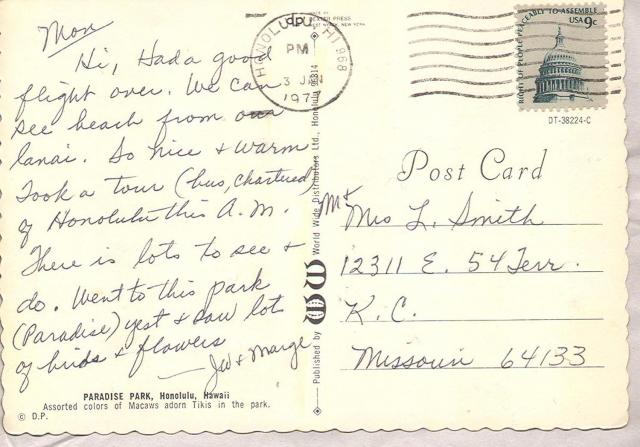 Mon
Hi, Had a good
flight over. We can
see beach from our
lanai. So nice & warm
Took a tour (bus, chartered)
of Honolulu this A.M.
There is lots to see &
do. Went to this park
(Paradise) yest & saw lots
of birds & flowers
— JW & Marge
PARADISE PARK, Honolulu, Hawaii
Assorted colors of Macaws adorn Tikis in the park.
© D.P.
Published by World Wide Distributors Ltd., Honolulu 96814
WW
dpu
DEXTER PRESS
WEST NYACK, NEW YORK
HONOLULU, HI 968
PM
3 JAN
RIGHT OF PEOPLE PEACEABLY TO ASSEMBLE
USA 9c
DT-38224-C
Post Card
Mr &
Mrs L. Smith
12311 E. 54 Terr.
K.C.
Missouri 64133